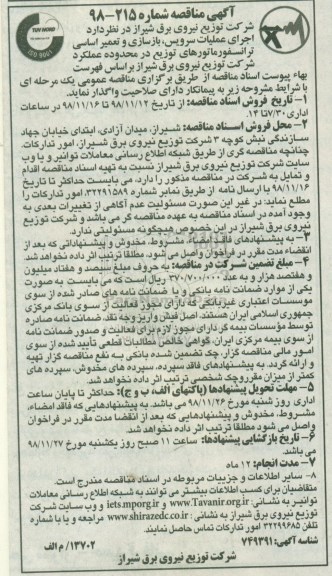 آگهی مناقصه شماره ۲۱۵-۹۸
شرکت توزیع نیروی برق شیراز در نظر دارد
اجرای عملیات سرویس، بازسازی و تعمیر اساسی
ترانسفورماتورهای توزیع در محدوده عملکرد
شرکت توزیع نیروی برق شیراز براساس فهرست
TUV NORD
ISO 9001
بهاء پیوست اسناد مناقصه از طریق برگزاری مناقصه عمومی یک مرحله ای
با شرایط مشروحه زیر به پیمانکار دارای صلاحیت واگذار نماید.
۱- تاریخ فروش اسناد مناقصه: از تاریخ ۹۸/۱۱/۱۲ تا ۹۸/۱۱/۱۶ در ساعات
اداری ۷/۳۰ تا ۱۴.
۲- محل فروش اسناد مناقصه: شیراز، میدان آزادی، ابتدای خیابان جهاد
سازندگی نبش کوچه ۳ شرکت توزیع نیروی برق شیراز، امور تدارکات.
چنانچه مناقصه گری از طریق شبکه اطلاع رسانی معاملات توانیر و یا وب
سایت شرکت توزیع نیروی برق شیراز نسبت به تهیه اسناد مناقصه اقدام
و تمایل به شرکت در مناقصه مذکور را دارد، می بایست حداکثر تا تاریخ
۹۸/۱۱/۱۶ با ارسال نامه از طریق نمابر شماره ۳۲۲۹۱۵۸۹ امور تدارکات را
مطلع نماید؛ در غیر این صورت مسئولیت عدم آگاهی از تغییرات بعدی به
وجود آمده در اسناد مناقصه به عهده مناقصه گر می باشد و شرکت توزیع
نیروی برق شیراز در این خصوص هیچگونه مسئولیتی ندارد.
۳- به پیشنهادهای فاقد امضاء، مشروط، مخدوش و پیشنهاداتی که بعد از
انقضاء مدت مقرر در فراخوان واصل می شود، مطلقا ترتیب اثر داده نخواهد شد.
۴- مبلغ تضمین شرکت در مناقصه: به حروف مبلغ سیصد و هفتاد میلیون
و هفتصد هزار و به عدد ۳۷۰/۷۰۰/۰۰۰ ریال است که می بایست به صورت
یکی از موارد ضمانت نامه بانکی و یا ضمانت نامه های صادره شده از سوی
موسسات اعتباری غیربانکی که دارای مجوز فعالیت از سوی بانک مرکزی
جمهوری اسلامی ایران هستند، اصل فیش واریز وجه نقد، ضمانت نامه صادره
توسط مؤسسات بیمه گر دارای مجوز لازم برای فعالیت و صدور ضمانت نامه
از سوی بیمه مرکزی ایران، گواهی خالص مطالبات قطعی تأیید شده از سوی
امور مالی مناقصه گزار، چک تضمین شده بانکی به نفع مناقصه گزار تهیه
و ارائه گردد. به پیشنهادهای فاقد سپرده، سپرده های مخدوش، سپرده های
کمتر از میزان مقرر و چک شخصی ترتیب اثر داده نخواهد شد.
۵- مهلت تحویل پیشنهادها (پاکتهای الف، ب و ج): حداکثر تا پایان ساعت
اداری روز شنبه مورخ ۹۸/۱۱/۲۶ می باشد. به پیشنهادهایی که فاقد امضاء،
مشروط، مخدوش و پیشنهادهایی که بعد از انقضا مدت مقرر در فراخوان
واصل می شود مطلقا ترتیب اثر داده نخواهد شد.
۶- تاریخ بازگشایی پیشنهادها: ساعت ۱۱ صبح روز یکشنبه مورخ ۹۸/۱۱/۲۷
می باشد.
۷- مدت انجام: ۱۲ ماه
۸- سایر اطلاعات و جزییات مربوطه در اسناد مناقصه مندرج است.
متقاضیان برای کسب اطلاعات بیشتر می توانند به شبکه اطلاع رسانی معاملات
توانیر به نشانی www.Tavanir.org.ir و iets.mporg.ir و وب سایت شرکت
توزیع نیروی برق شیراز به نشانی: www.shirazedc.co.ir مراجعه و یا با شماره
تلفن ۳۲۲۹۹۶۸۵ امور تدارکات تماس حاصل نمایند.
شناسه آگهی: ۷۴۹۳۹۱
۱۳۷۰۲/ م الف
شرکت توزیع نیروی برق شیراز